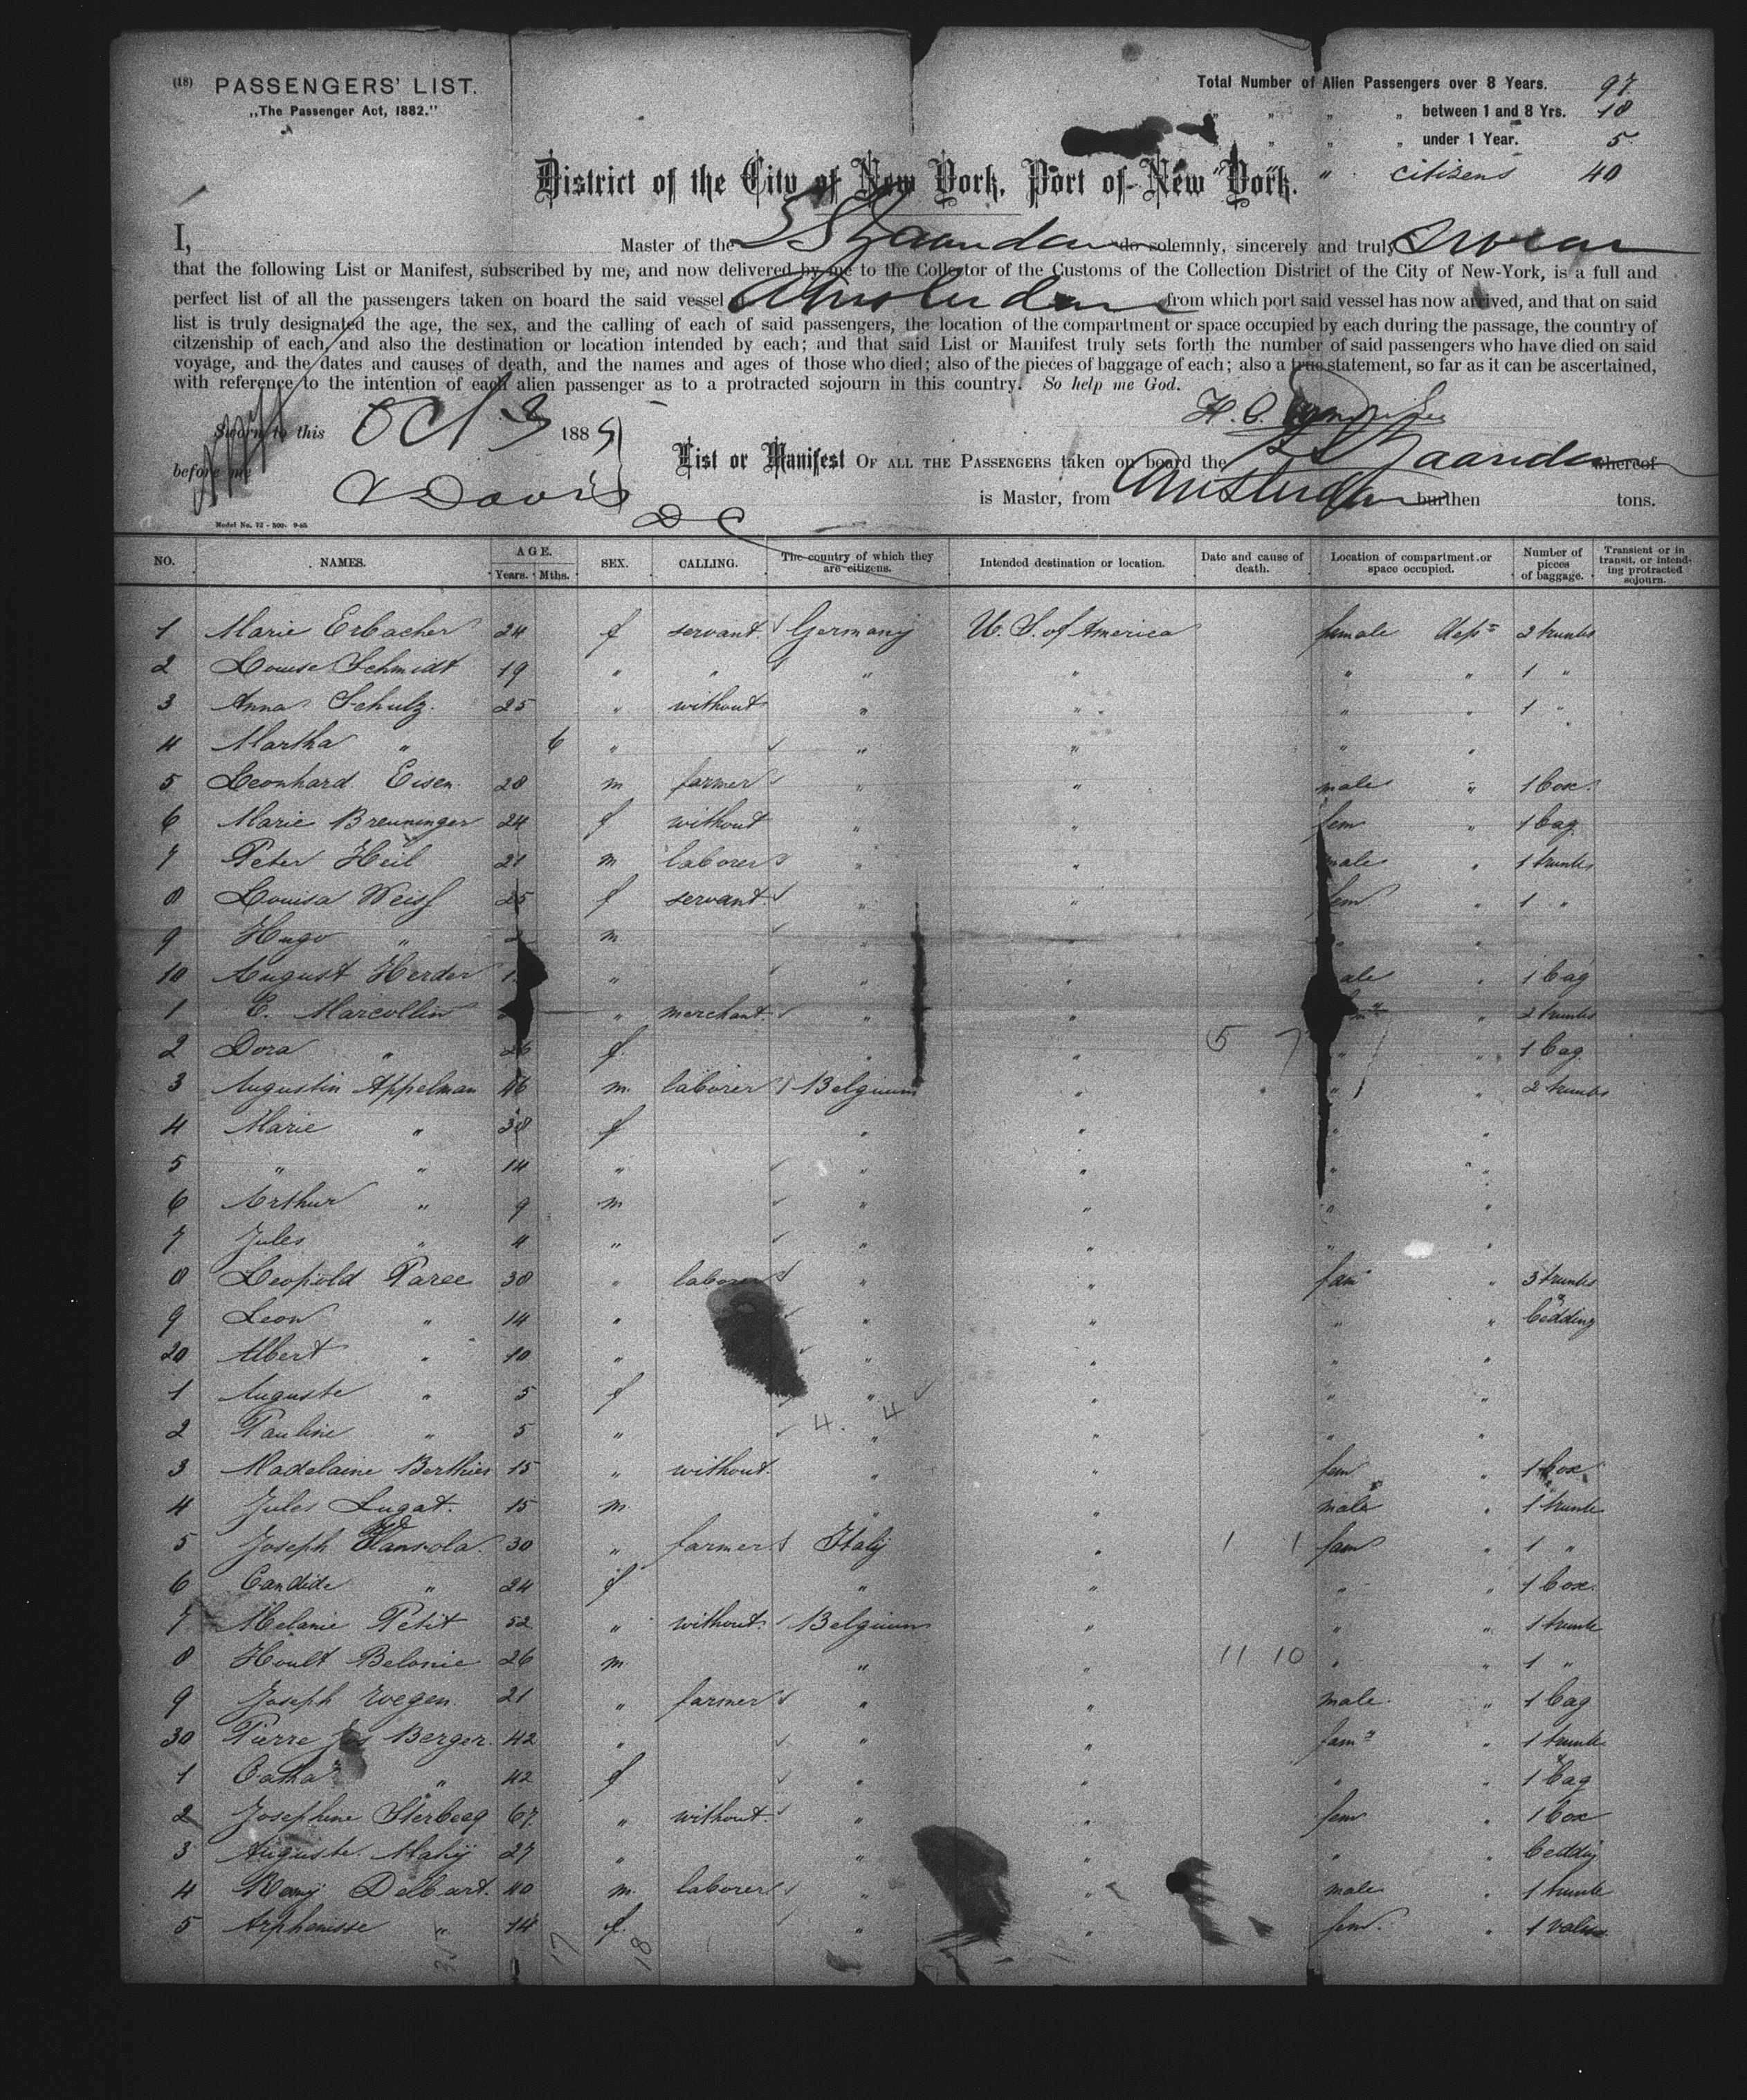 (18) PASSENGERS' LIST.
„The Passenger Act, 1882."
Total Number of Alien Passengers over 8 Years. 97
„ „ „ „ between 1 and 8 Yrs. 18
„ „ „ „ under 1 Year. 5
„ citizens 40
District of the City of New York, Port of New York.
I, Master of the SS Zaandam do solemnly, sincerely and truly swear
that the following List or Manifest, subscribed by me, and now delivered by me to the Collector of the Customs of the Collection District of the City of New-York, is a full and
perfect list of all the passengers taken on board the said vessel Amsterdam from which port said vessel has now arrived, and that on said
list is truly designated the age, the sex, and the calling of each of said passengers, the location of the compartment or space occupied by each during the passage, the country of
citzenship of each, and also the destination or location intended by each; and that said List or Manifest truly sets forth the number of said passengers who have died on said
voyage, and the dates and causes of death, and the names and ages of those who died; also of the pieces of baggage of each; also a true statement, so far as it can be ascertained,
with reference to the intention of each alien passenger as to a protracted sojourn in this country. So help me God.
Sworn to this Oct 3 188
before me Davis
D C
List or Manifest OF ALL THE PASSENGERS taken on board the SS Zaandam whereof
is Master, from Amsterdam burthen tons.
Model No. 72 - 500-
NO. NAMES. AGE. Years. Mths. SEX. CALLING. The country of which they are citizens. Intended destination or location. Date and cause of death. Location of compartment or space occupied. Number of pieces of baggage. Transient or in transit, or intending protracted sojourn.
1 Marie Erbacher 24 f servant Germany U. S. of America female dept 2 trunks
2 Louise Schmidt 19 „ „ „ „ „ „ 1 „
3 Anna Schulz 25 „ without „ „ „ „ 1 „
4 Martha „ 6 „ „ „ „ „
5 Leonhard Eisen 28 m farmer „ „ male „ 1 box
6 Marie Breuninger 24 f without „ „ fem „ 1 bag
7 Peter Heil 21 m laborer „ „ male „ 1 trunk
8 Louisa Weiss 25 f servant „ „ fem „ 1 „
9 Hugo „ m „ „ „ „
10 August Herder „ „ „ male „ 1 bag
1 E. Marcollin „ merchant „ „ „ 2 trunks
2 Dora „ 26 f „ „ 5 7 „ „ 1 bag
3 Augustin Appelman 46 m laborer Belgium „ „ „ 2 trunks
4 Marie „ 38 f „ „ „ „
5 „ „ 14 „ „ „ „ „
6 Arthur „ 9 m „ „ „ „
7 Jules „ 4 „ „ „ „ „
8 Leopold Paree 38 „ laborer „ „ fam „ 3 trunks
9 Leon „ 14 „ „ „ „ „ bedding
20 Albert „ 10 „ „ „ „ „
1 Auguste „ 5 f „ „ „ „
2 Pauline „ 5 „ 4. 4 „ „ „ „
3 Madelaine Berthier 15 „ without „ „ fem „ 1 box
4 Jules Lugat 15 m „ „ male „ 1 trunk
5 Joseph 30 „ farmer Italy „ 1 1 fam „ 1 „
6 Candide „ 24 f „ „ „ „ 1 box
7 Melanie Petit 52 „ without Belgium „ „ „ 1 trunk
8 Hoult Belonie 26 m „ „ 11 10 „ „ 1 „
9 Joseph Evegen 21 „ farmer „ „ male „ 1 bag
30 Pierre Jos Berger 42 „ „ „ fam „ 1 trunk
1 Catha „ 42 f „ „ „ „ 1 bag
2 Josephine Sterbecq 67 „ without „ „ fem „ 1 box
3 Auguste Mahy 27 „ „ „ „ „ bedding
4 Remy Delbart 40 m laborer „ „ male „ 1 trunk
5 Arphenisse „ 14 f „ „ fem „ 1 valise
17 18